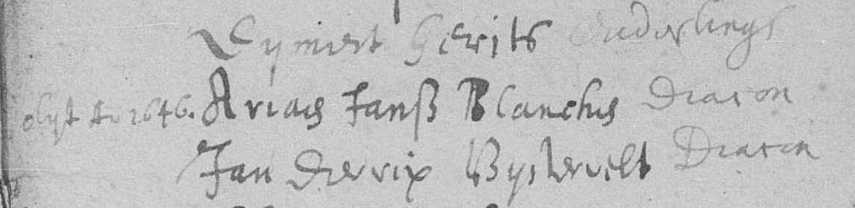 Leymert Gerits Ouderlingh
obyt Ao 1646. Ariaen Janß Blanckus Diacon
Jan Dierrix Bystervelt Diacon